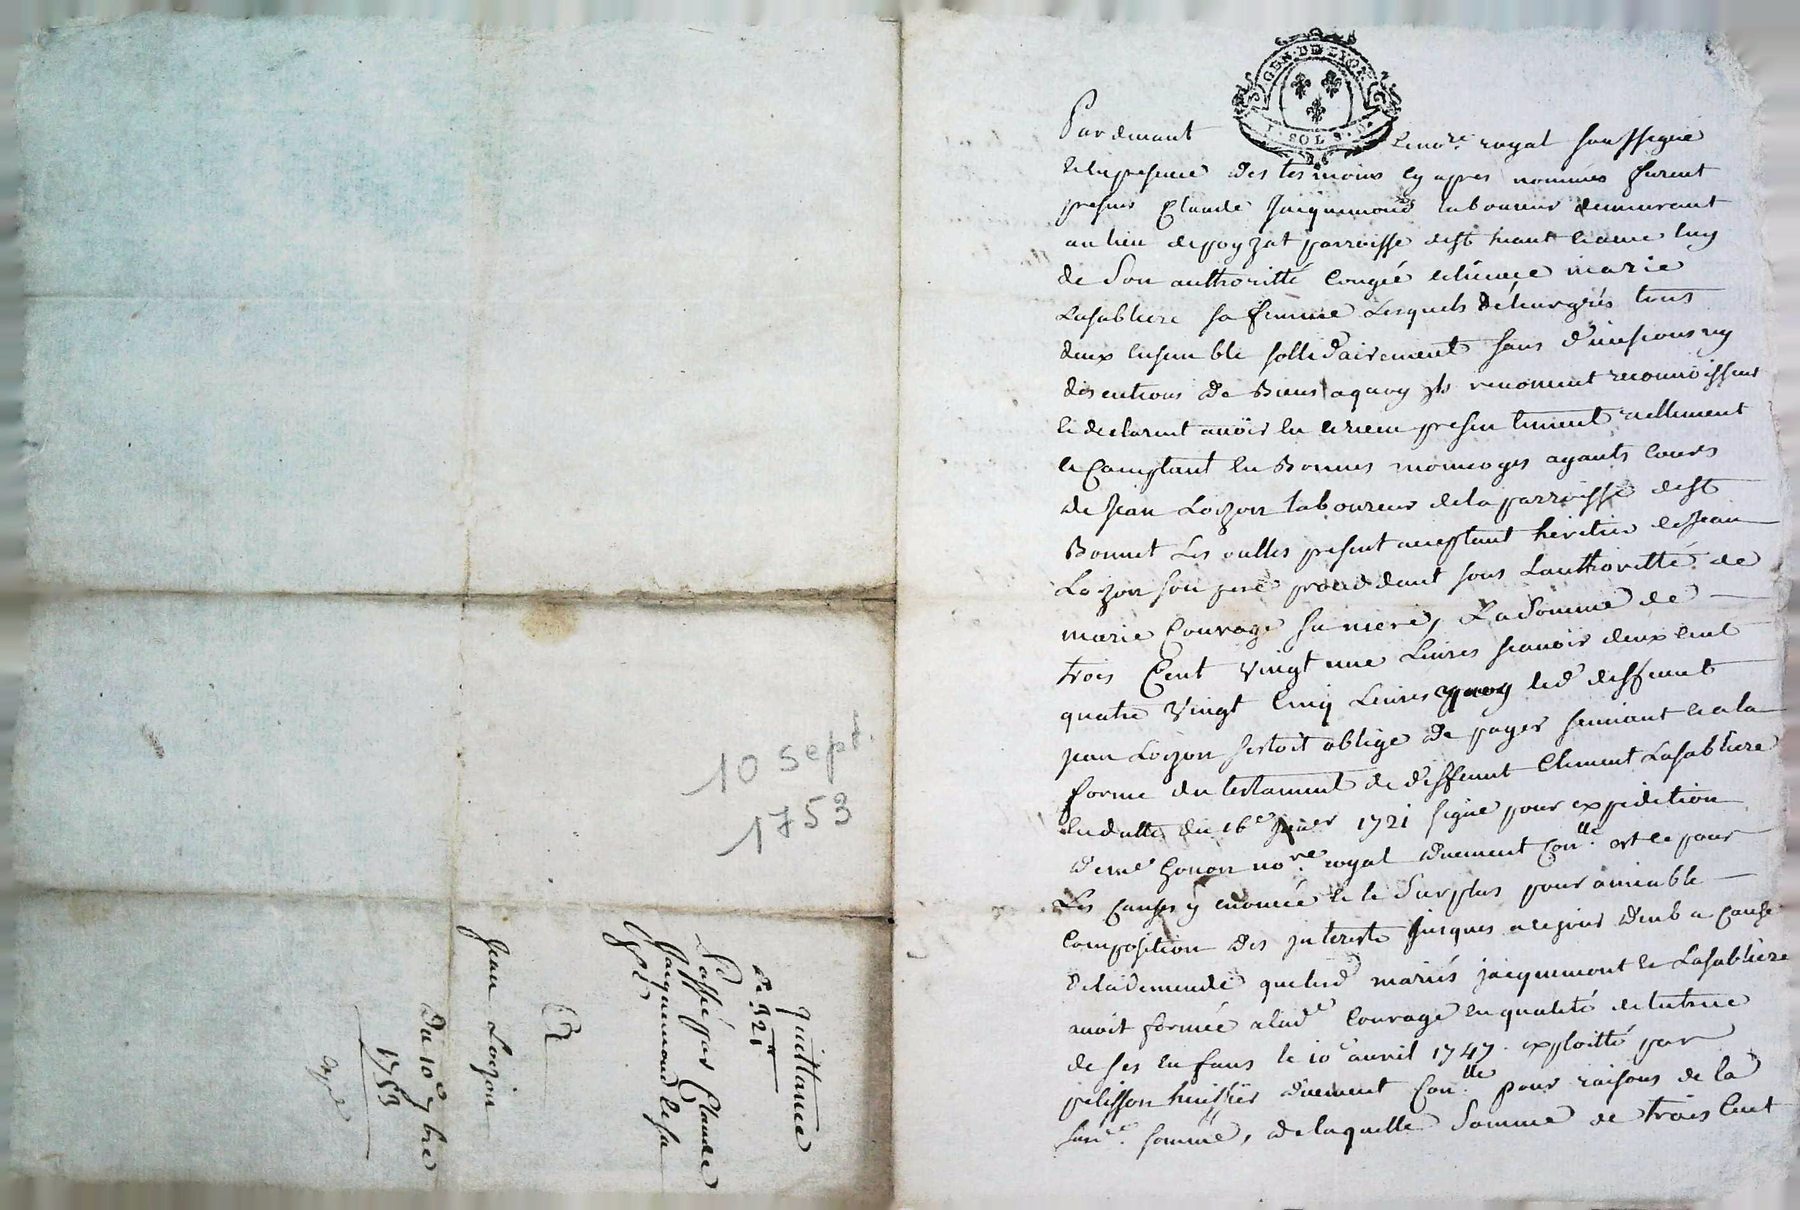 GEN. DE LYON
SOLS
Pardevant Le no.re royal soussigné
et en presence des tesmoins cy apres nommés furent
presens Claude Jacquemond laboureur demeurant
au lieu de poyzat parroisse de st haant et avec luy
de son authorité Congée et licence marie
Lasabliere sa femme Lesquels de leurs grés tous
deux ensemble sollidairement sans division ny
discutions de Biens a quoy ils renoncent reconnoissent
et declarent avoir eu et receu presentement reellement
et Comptant en Bonnes monnoyes ayants cours
de Jean Loyzon laboureur de la parroisse de st
Bonnet Les oulles present acceptant heritier de Jean
Loyzon son pere procedant sous Lauthoritté de
marie Courage sa mere, La Somme de
trois Cent vingt une Livres scavoir deux cent
quatre vingt Cinq Livres quoy led deffunt
Jean Loyzon sestoit obligé de payer suivant et a la
forme du testament de deffunt Clement Lasabliere
en datte du 16e 1721 signé pour expedition
de me no.re royal duement Con.lle et ce pour
Les Causes y enoncée et le Surplus pour amiable
Composition des interests jusques a ce jour deub a Cause
de la demende que lesd mariés jacquemont et Lasabliere
avoit formée a lad.e Courage en qualité de tutrice
de ses enfans le 10e avril 1747. exploitté par
pelisson huissier duement Con.lle pour raisons de la
sus.e somme, de laquelle Somme de trois Cent
10 sept.
1753
quittance
de 321
Passée par Claude
Jacquemond et sa
Jean Loyzon
Du 10e 7bre
1753